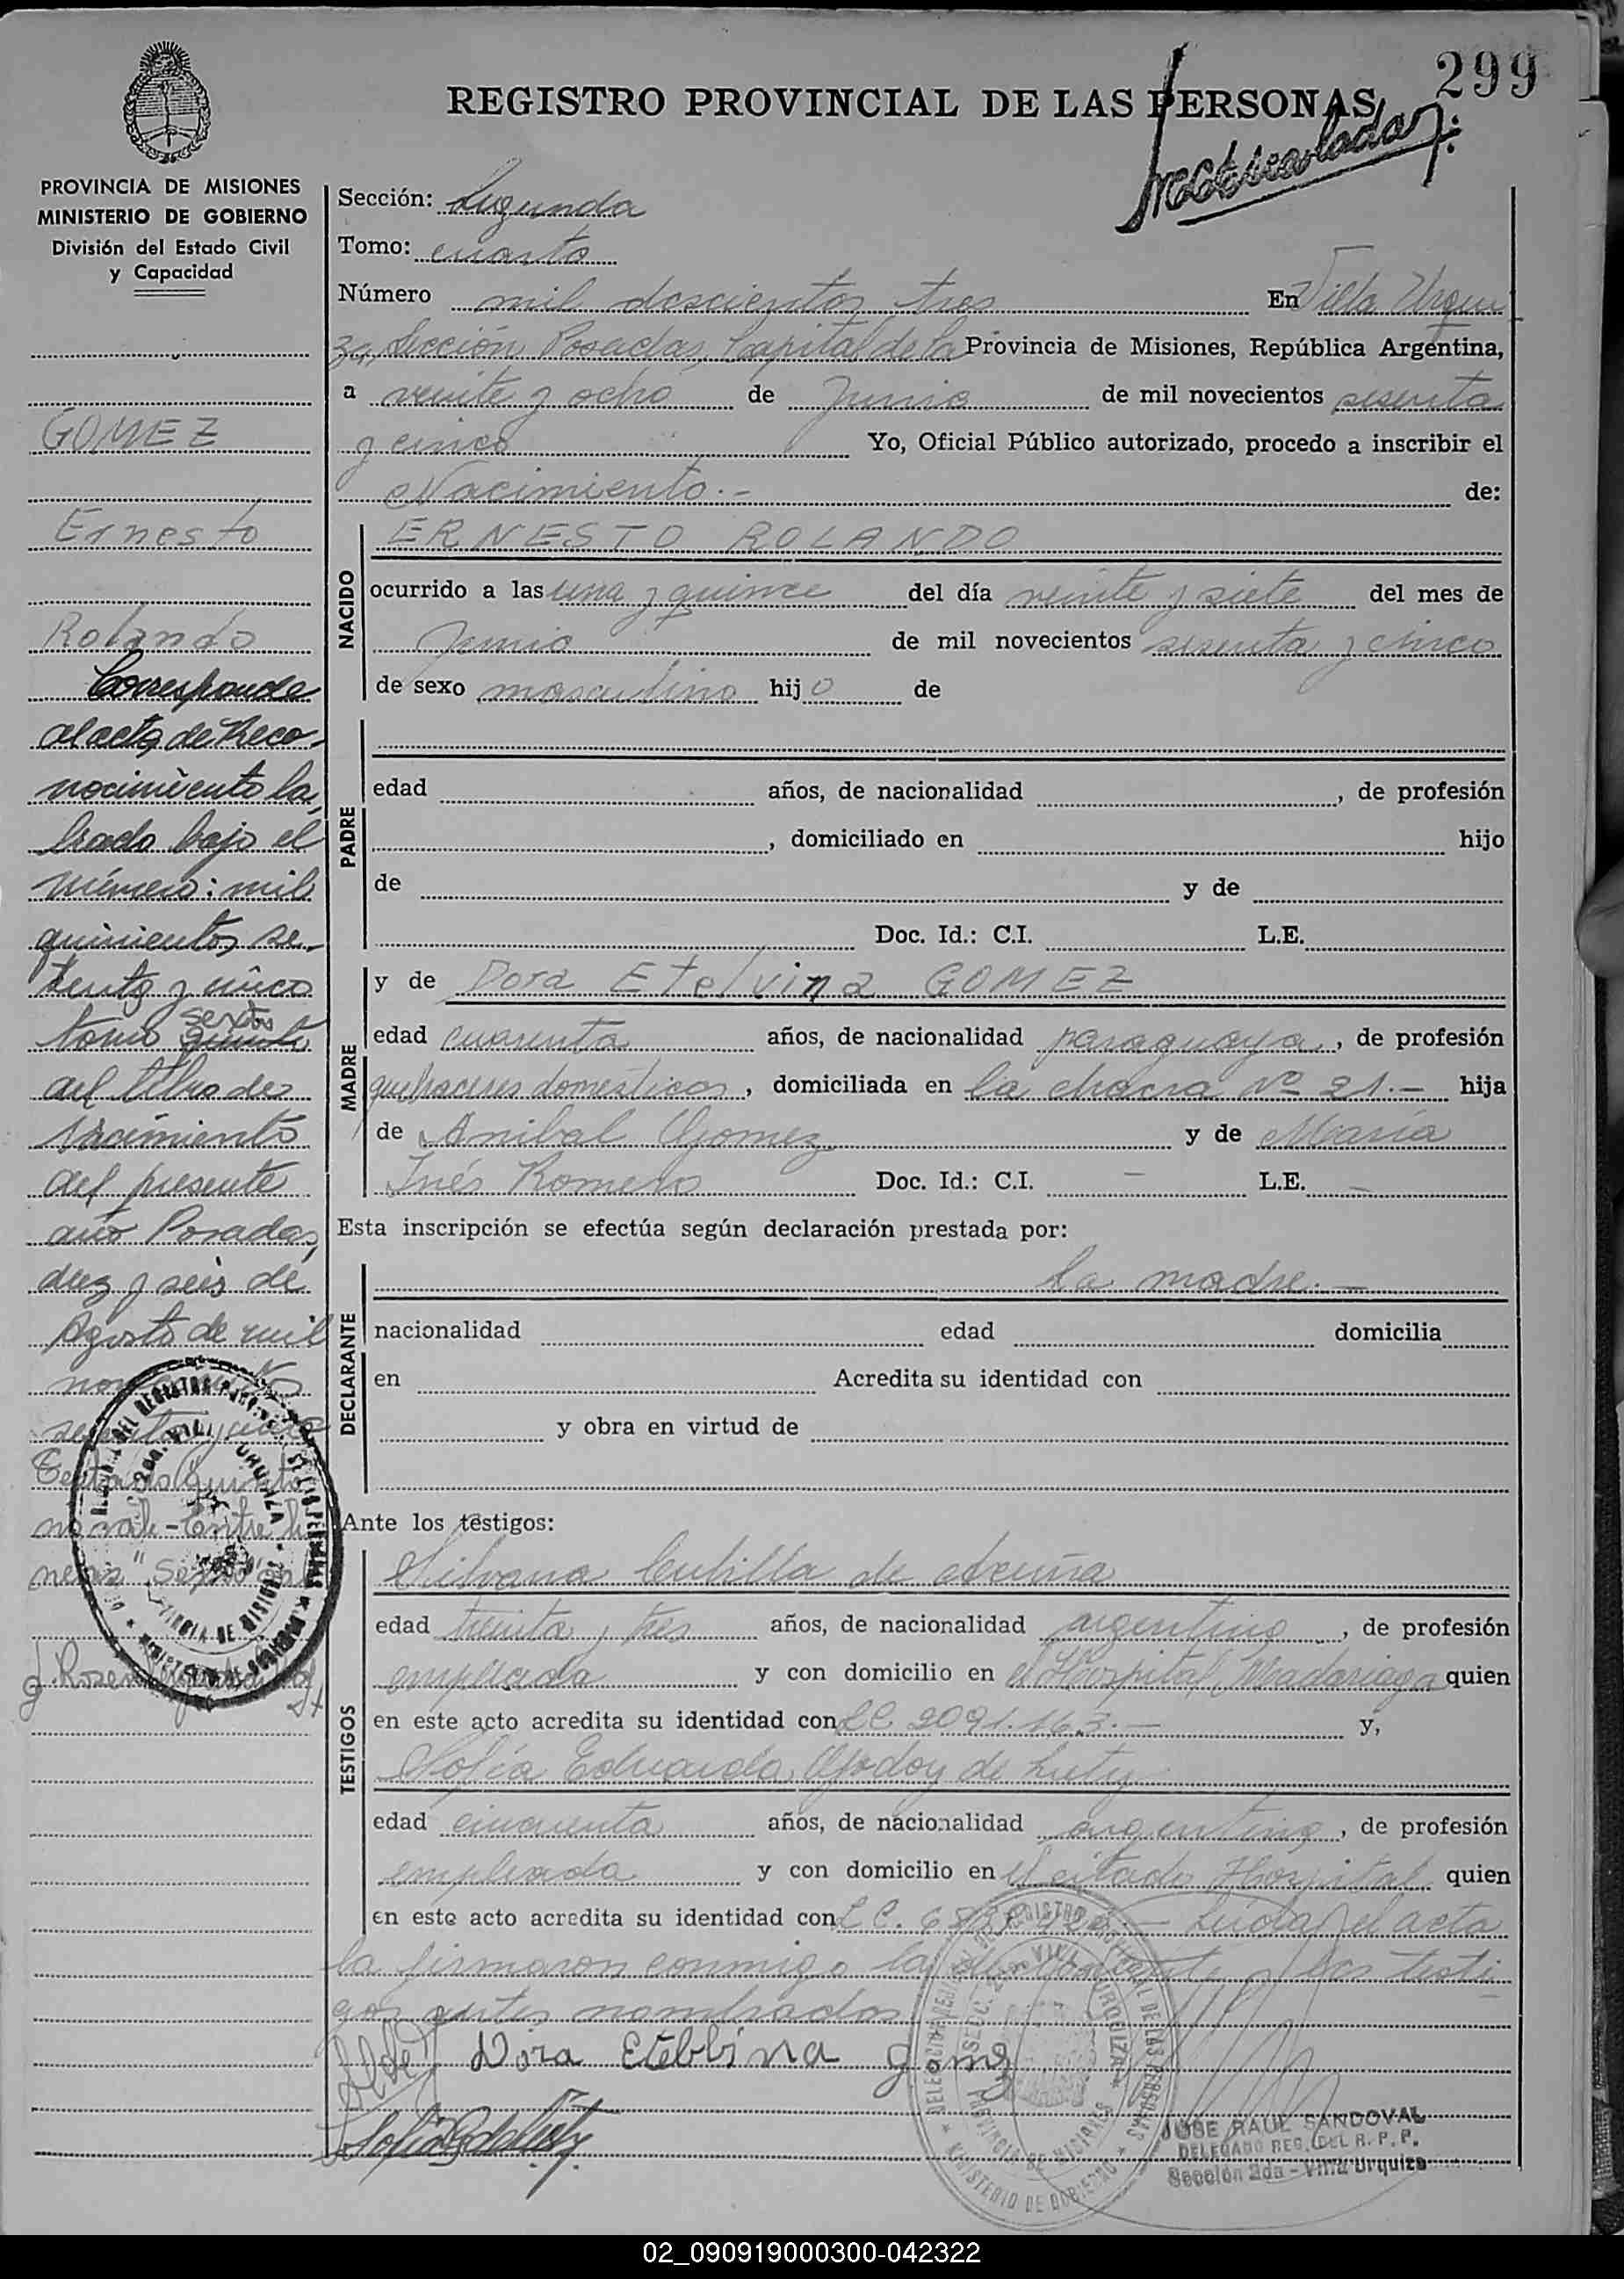 299
REGISTRO PROVINCIAL DE LAS PERSONAS
PROVINCIA DE MISIONES
MINISTERIO DE GOBIERNO
División del Estado Civil
y Capacidad
GOMEZ
Ernesto
Rolando
Corresponde
al acta de Reco-
nocimiento la
brado bajo el
número: mil
quinientos se-
tenta y cinco
sexto
tomo quinto
del libro de
Nacimiento
del presente
año Posadas,
diez y seis de
Agosto de mil
novecientos
sesenta y cinco
Testado Quinto
no vale - Entre li
neas "Sexto"
Sección: Segunda
Tomo: cuarto
Número mil doscientos tres En Villa Urqui
za, Sección Posadas, Capital de la Provincia de Misiones, República Argentina,
a veinte y ocho de Junio de mil novecientos sesenta
y cinco Yo, Oficial Público autorizado, procedo a inscribir el
Nacimiento.- de:
NACIDO
ERNESTO ROLANDO
ocurrido a las una y quince del día veinte y siete del mes de
Junio de mil novecientos sesenta y cinco
de sexo masculino hijo de
PADRE
edad años, de nacionalidad , de profesión
, domiciliado en hijo
de y de
Doc. Id.: C.I. L.E.
MADRE
y de Dora Etelvina GOMEZ
edad cuarenta años, de nacionalidad paraguaya, de profesión
quehaceres domésticos, domiciliada en la chacra Nº 21.- hija
de Anibal Gomez y de María
Inés Romero Doc. Id.: C.I. - L.E. -
Esta inscripción se efectúa según declaración prestada por:
DECLARANTE
la madre.-
nacionalidad edad domicilia
en Acredita su identidad con
y obra en virtud de
Ante los testigos:
TESTIGOS
Silvana Cubilla de Acuña
edad treinta y tres años, de nacionalidad argentina, de profesión
empleada y con domicilio en el Hospital Madariaga quien
en este acto acredita su identidad con LC 2091.163.- y,
Sofía Eduarda Godoy de Luty
edad cincuenta años, de nacionalidad argentina, de profesión
empleada y con domicilio en el citado Hospital quien
en este acto acredita su identidad con L C. Leída el acta
la firmaron conmigo la y los testi-
gos antes nombrados
Dora Etelbina gomez
JOSE RAUL SANDOVAL
DELEGADO REG. DEL R. P. P.
Sección 2da - Villa Urquiza
02_090919000300-042322